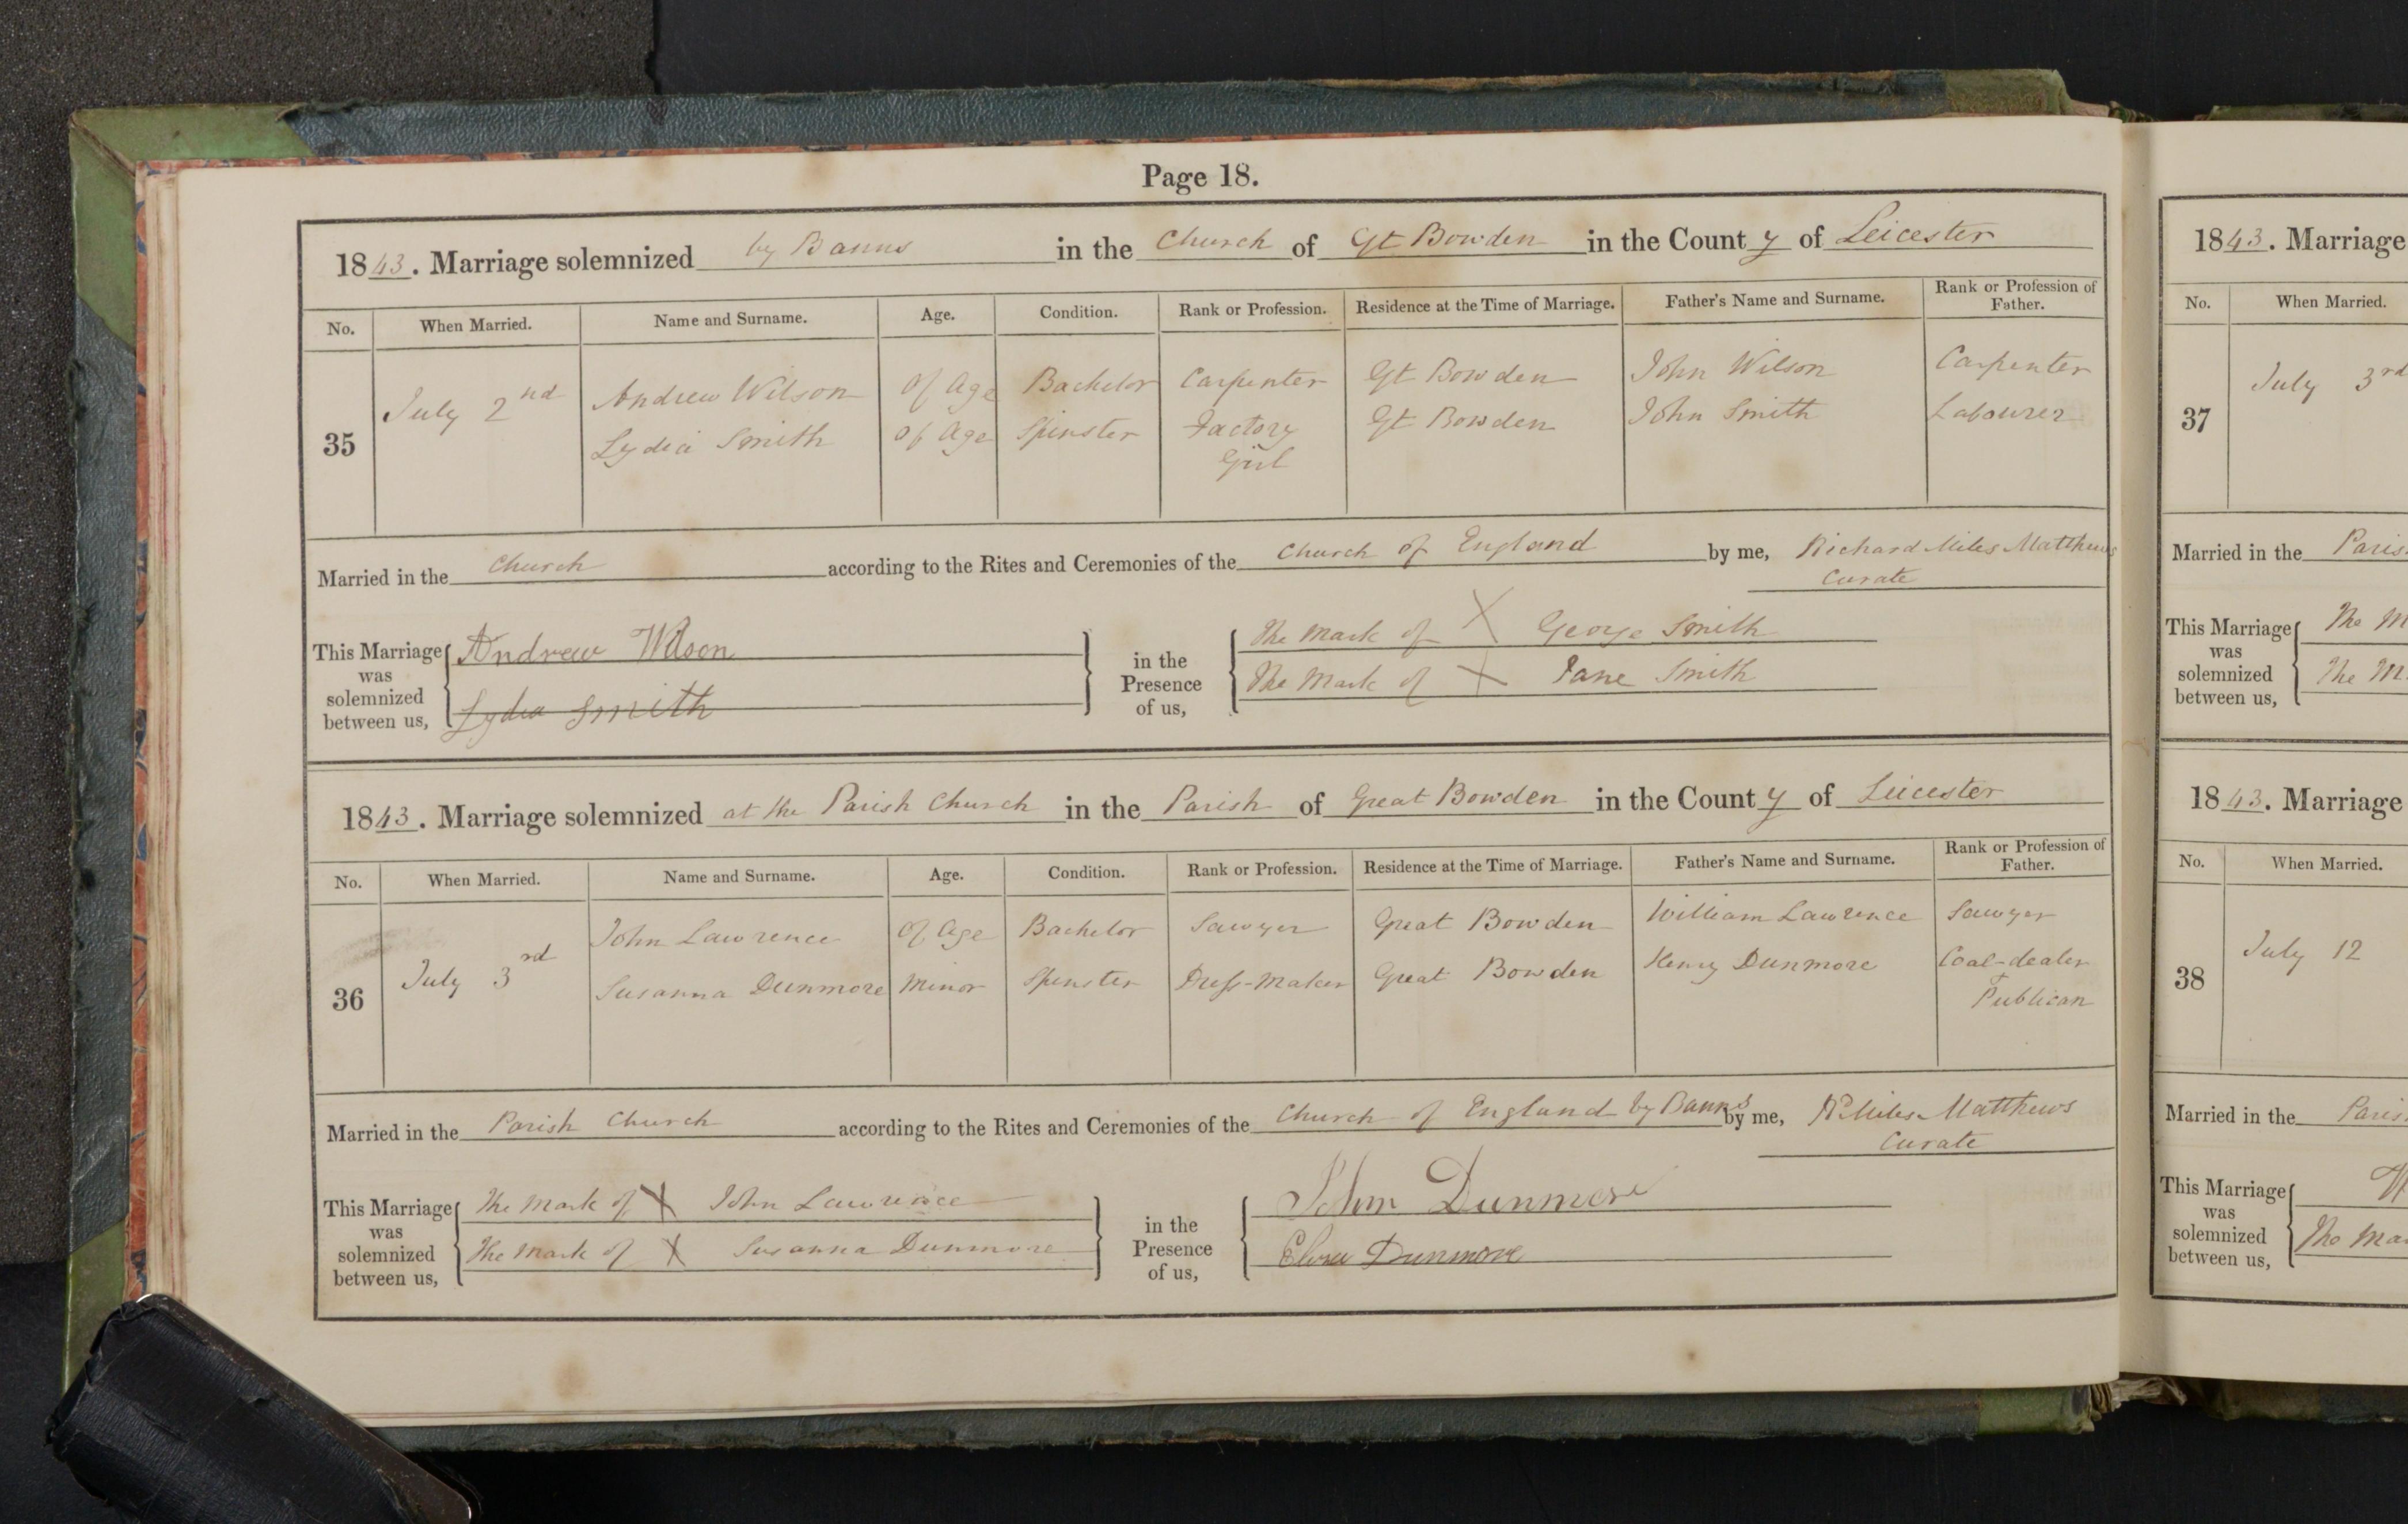 Page 18.
1843. Marriage solemnized by Banns in the Church of Gt Bowden in the County of Leicester
No. When Married. Name and Surname. Age. Condition. Rank or Profession. Residence at the Time of Marriage. Father's Name and Surname. Rank or Profession of Father.
35 July 2nd Andrew Wilson Of Age Bachelor Carpenter Gt Bowden John Wilson Carpenter
Lydia Smith Of Age Spinster Factory Girl Gt Bowden John Smith Labourer
Married in the Church according to the Rites and Ceremonies of the Church of England by me, Richard Miles Matthews
Curate
This Marriage was solemnized between us,
Andrew Wilson
Lydia Smith
in the Presence of us,
The Mark of X George Smith
The Mark of X Jane Smith
1843. Marriage solemnized at the Parish Church in the Parish of Great Bowden in the County of Leicester
No. When Married. Name and Surname. Age. Condition. Rank or Profession. Residence at the Time of Marriage. Father's Name and Surname. Rank or Profession of Father.
36 July 3rd John Lawrence Of Age Bachelor Sawyer Great Bowden William Lawrence Sawyer
Susanna Dunmore Minor Spinster Dress-Maker Great Bowden Henry Dunmore Coal-dealer
Publican
Married in the Parish Church according to the Rites and Ceremonies of the Church of England by Banns by me, Rd Miles Matthews
Curate
This Marriage was solemnized between us,
The Mark of X John Lawrence
The Mark of X Susanna Dunmore
in the Presence of us,
John Dunmore
Dunmore
1843. Marriage
No. When Married.
37 July 3rd
Married in the
This Marriage was solemnized between us,
The
The
1843. Marriage
No. When Married.
38 July 12
Married in the
This Marriage was solemnized between us,
The